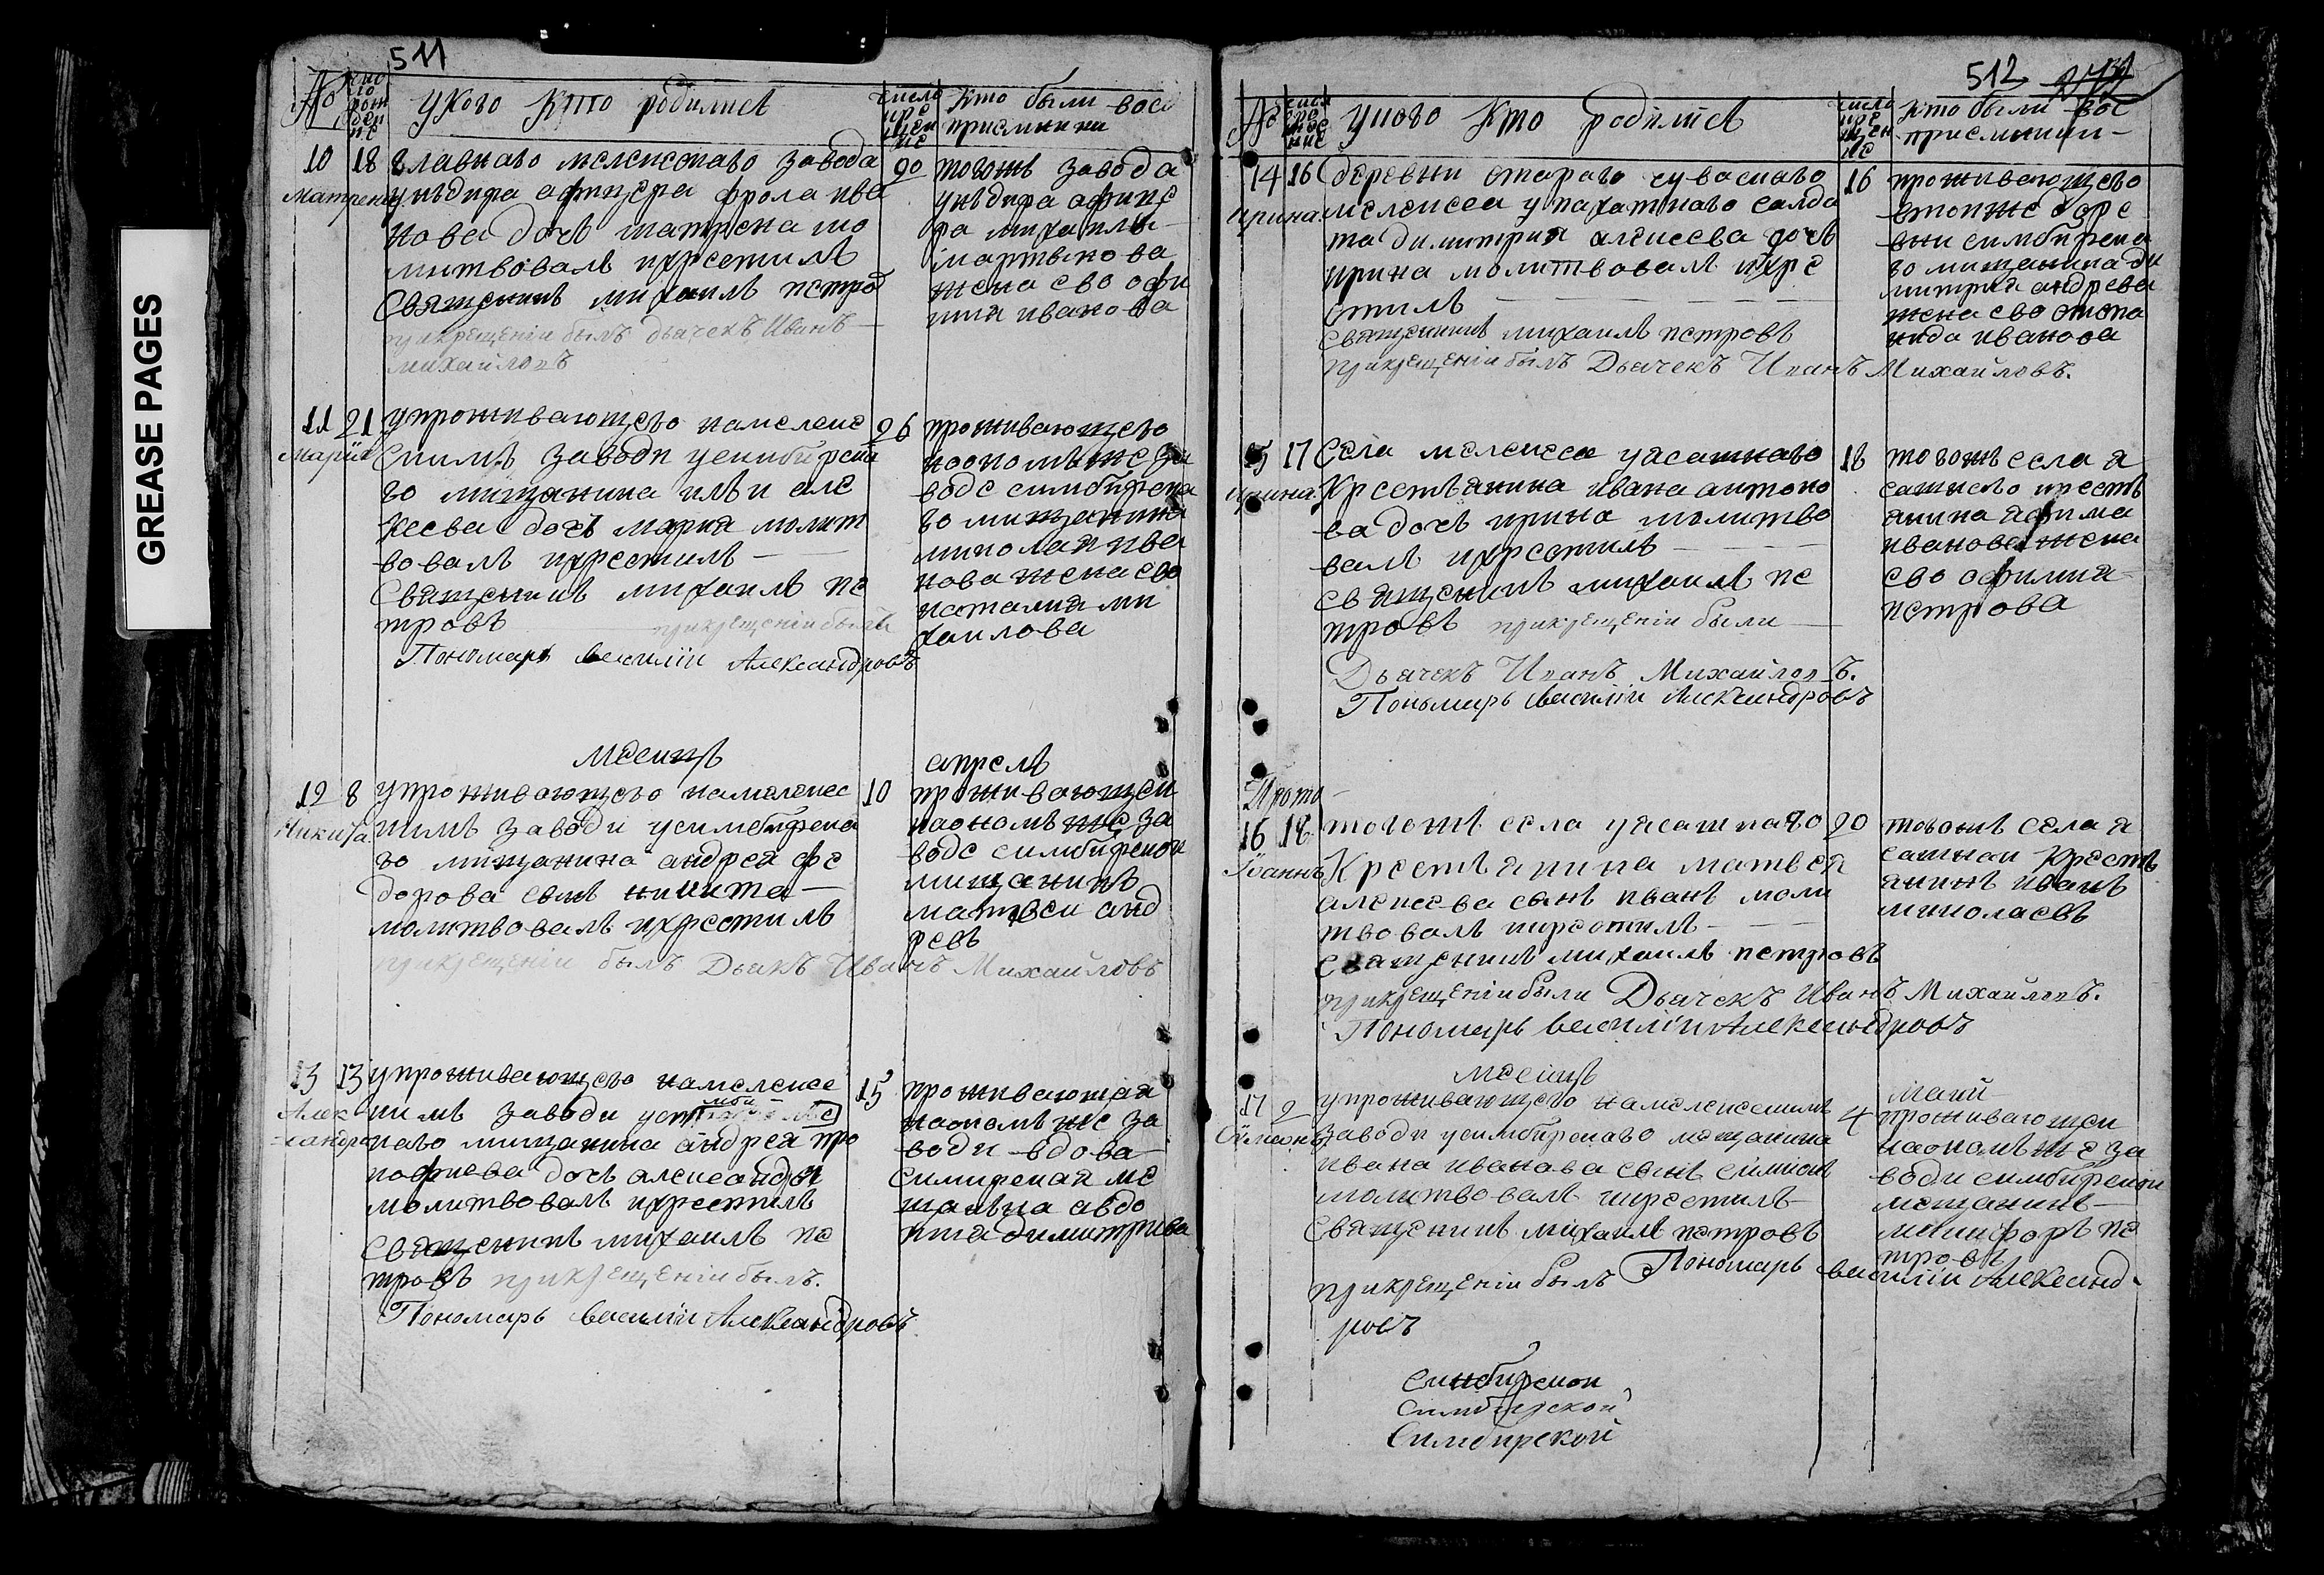 GREASE PAGES
511
№
число рождения
У Кого Кто родился
число крещения
Кто были восприемники
10
18
главнаго мелекескаго завода
20
Матрена
ундира афицера фрола ива
нова дочь матрена мо
литвовалъ икрестилъ
Священикъ михаилъ петров
прикрещеніи былъ дьячекъ Иванъ
михайловъ
тогожъ завода
ундира афице
ра михаилы
мартынова
жена ево офи
мия иванова
11
21
упроживающего намелекес
26
Мария
скимъ заводи усинбирска
го мищанина ильи але
ксеева дочь мария молит
вовалъ икрестилъ
Священикъ михаилъ пе
тровъ прикрещеніи былъ
Пономарь василіи Александровъ
проживающего
наономъ же за
водс симбирска
го мищанина
миколая ива
нова жена ево
наталия ми
хаилова
Месицъ апрель
12
8
упроживающего намелекес
10
Никита
кимъ заводи усимбирска
го мищанина андрея фе
дорова сынъ никита
молитвовалъ икрестилъ
прикрещеніи былъ Дьякъ Иванъ Михайловъ
проживающеи
наономъ же за
водс симбирскои
мищанинъ
матвеи анд
ревъ
13
13
упроживающего намелекес
15
Алек
сандра
кимъ заводи
наго мищанина андрея про
кофиева дочь александра
молитвовалъ икрестилъ
Священикъ михаилъ пе
тровъ прикрещеніи былъ.
Пономарь василіи Александровъ
проживающая
наономъ же за
води вдова
симирская ме
щанъка авдо
тиа димитриева
512
№
У кого Кто родился
Кто были вос
приемники
14
16
деревни стараго чуваскаго
16
Ирина
мелекеса у пахатнаго салда
та димитрия алексеева дочь
ирина молитвовалъ икре
стилъ
Священикъ михаилъ петровъ
прикрещеніи былъ Дьячекъ Иванъ Михайловъ.
проживающего
втоиже дере
вни симбирска
го мищанина ди
митрия андрева
жена ево степа
нида иванова
15
17
Села мелекеса уясашнаго
18
Ирина
Крестьянина ивана антоно
ва дочь ирина молитво
валъ икрестилъ
священикъ михаилъ пе
тровъ прикрещеніи были
Дьячекъ Иванъ Михайловъ.
Пономарь василіи Александровъ
тогожъ села я
сашнево кресть
янина яфима
иванова жена
ево офимия
петрова
Прото
16
18
тогожъ села уясашнаго
20
Іоаннъ
Крестьянина матвея
алексеева сынъ иванъ моли
твовалъ икрестилъ
Священикъ михаилъ петровъ
прикрещеніи были Дьячекъ Иванъ Михайловъ.
Пономарь василіи Александровъ
тогожъ села я
сашнаи кресть
янинъ иванъ
миколаевъ
Месицъ маий
17
2
упроживающего намелекескимъ
4
Симеонъ
заводи усимбирскаго мещанина
ивана иванава сынъ симионъ
молитвовалъ икрестилъ
Священикъ михаилъ петровъ
прикрещеніи былъ Пономарь василіи Александ-
ровъ
проживающеи
наономъ же за
води симбирскои
мещанинъ
никифоръ пе
тровъ
Синбирскои
Симбирской
Симбирской